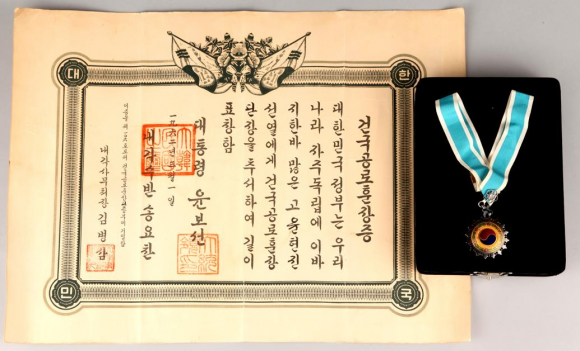 대 한
민 국
건국공로훈장증
대한민국 정부는 우리
나라 자주독립에 이바
지한바 많은 고 윤현진
선열에게 건국공로훈장
단장을 추서하여 길이
표창함
一九六二년 三월 一일
대통령 윤보선
내각수반 송요찬
내각사무처장 김병삼